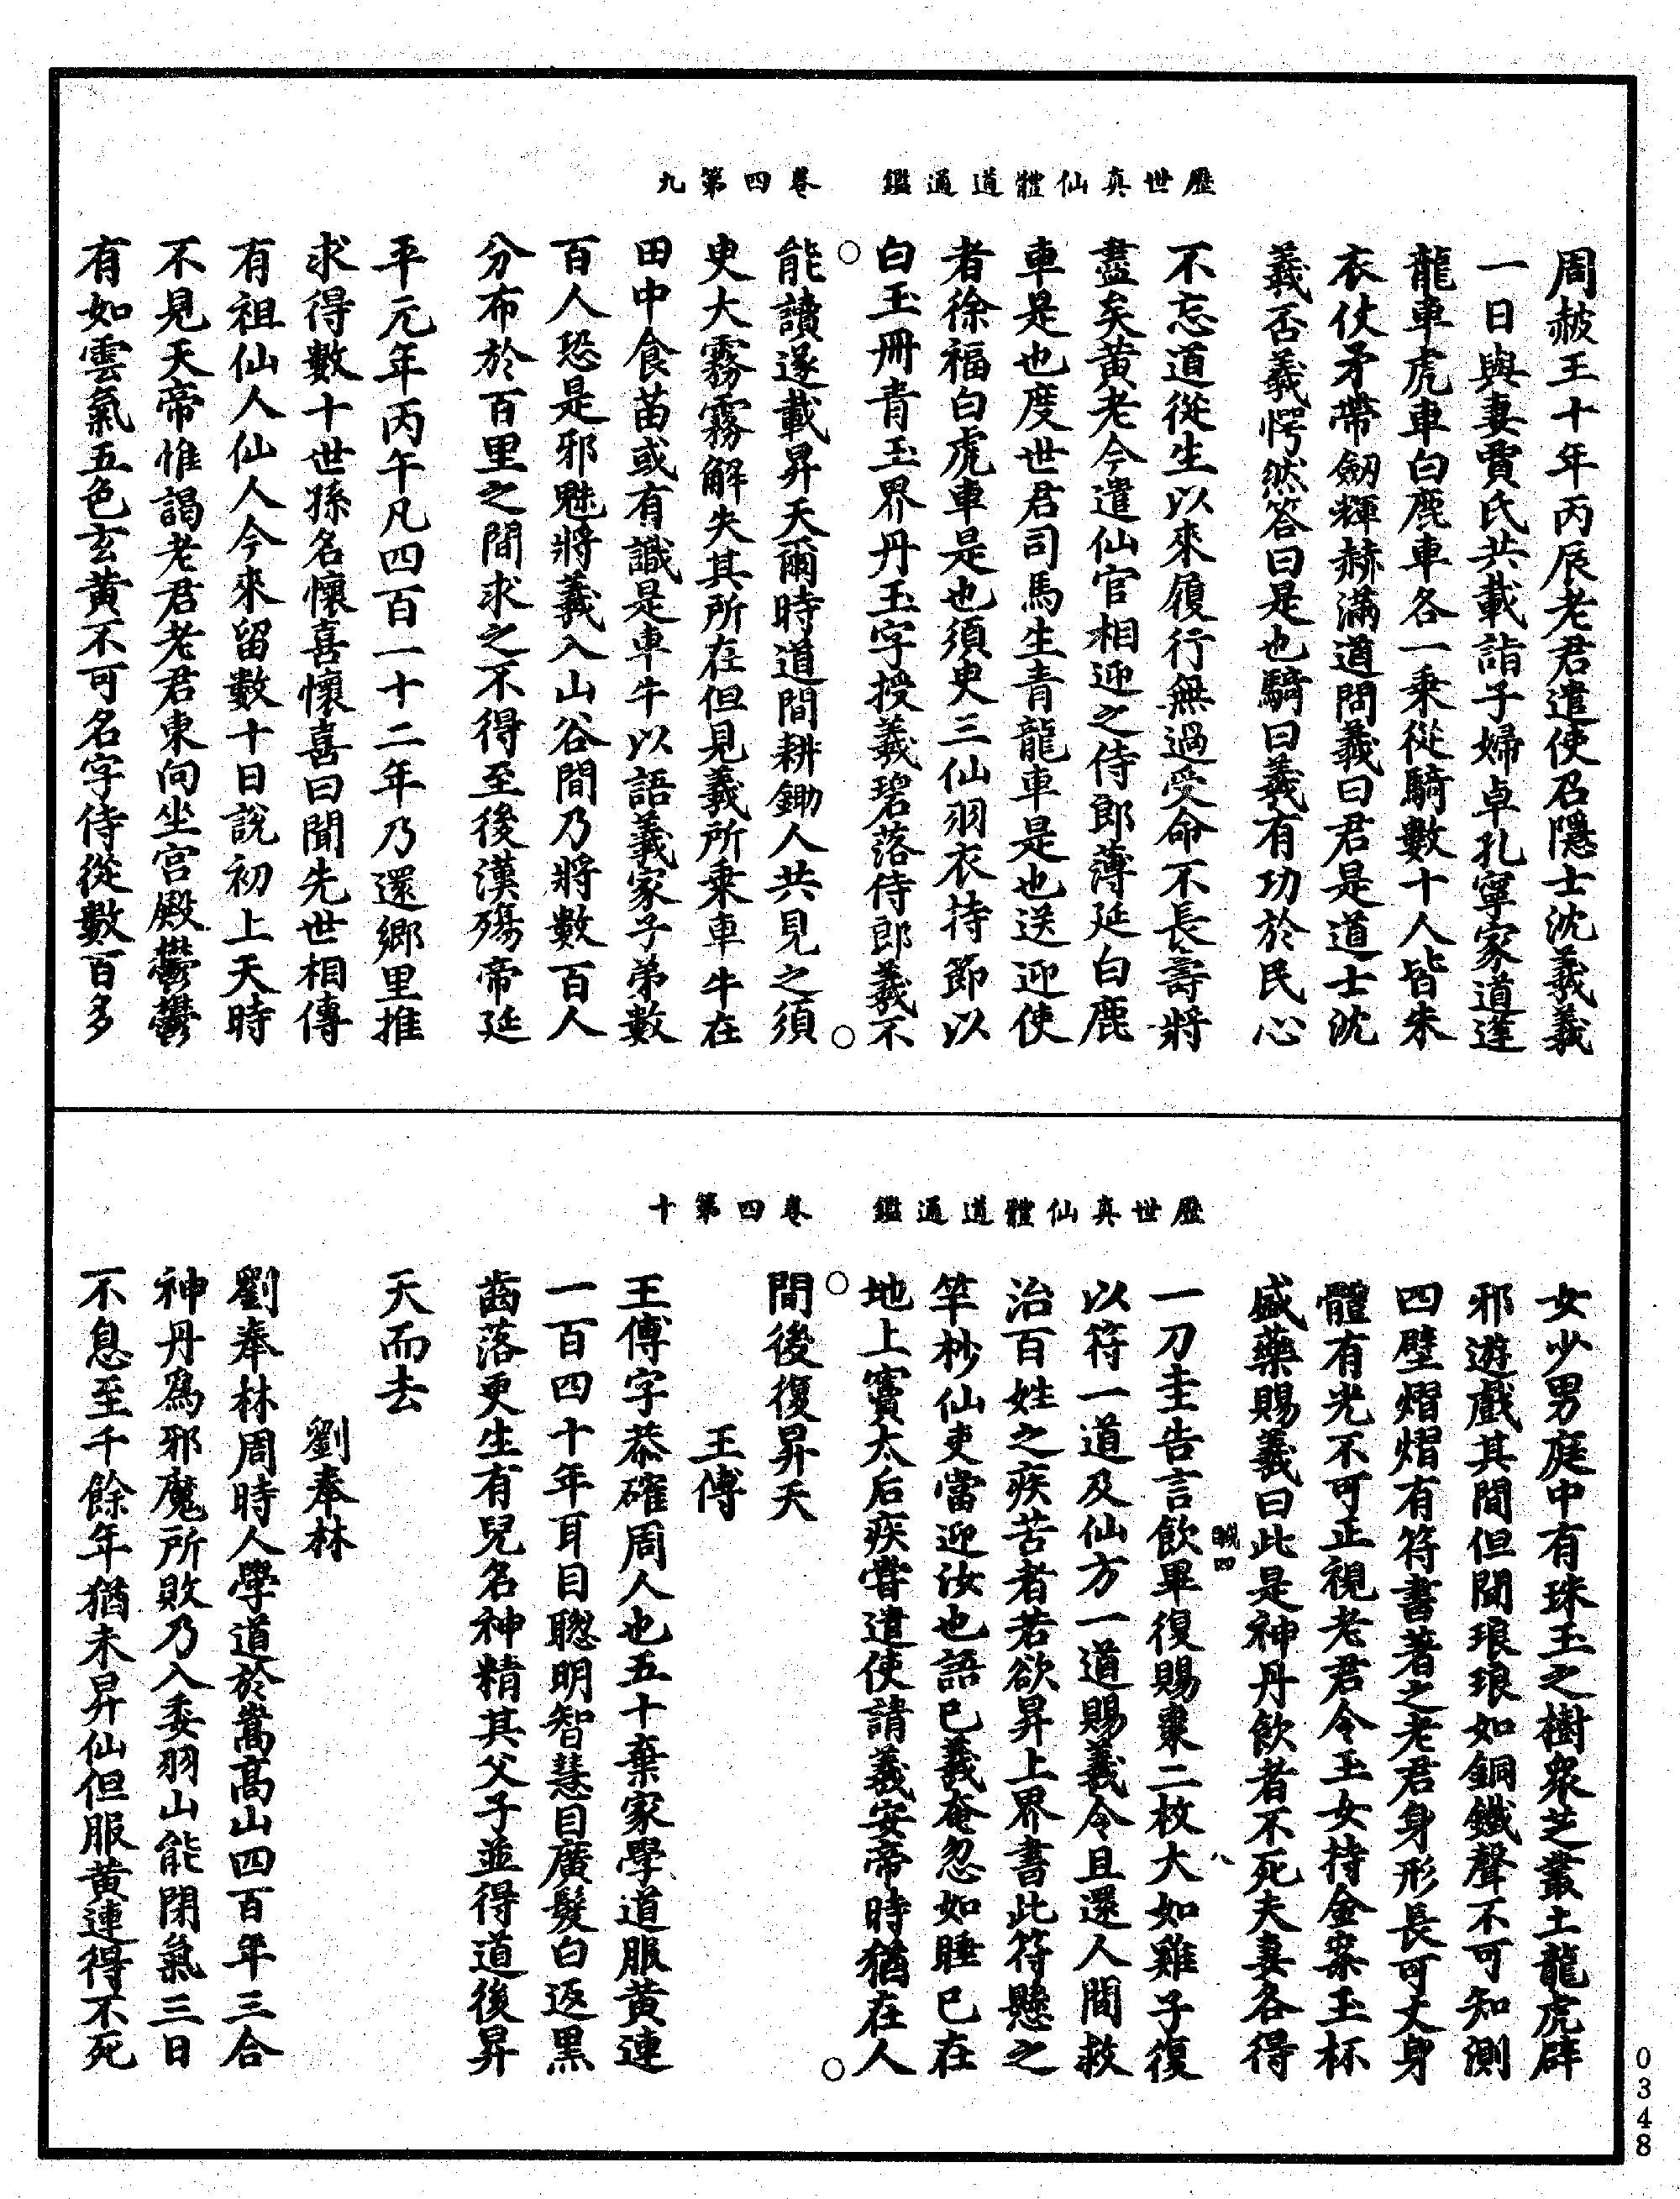 歷世真仙體道通鑑　卷四第九
周赧王十年丙辰老君遣使召隱士沈羲羲
一日與妻賈氏共載詣子婦卓孔寧家道逢
龍車虎車白鹿車各一乘從騎數十人皆朱
衣仗矛帶劒輝赫滿道問羲曰君是道士沈
羲否羲愕然答曰是也騎曰羲有功於民心
不忘道從生以來履行無過受命不長壽將
盡矣黃老今遣仙官相迎之侍郎薄延白鹿
車是也度世君司馬生青龍車是也送迎使
者徐福白虎車是也須臾三仙羽衣持節以
白玉冊青玉界丹玉字授羲碧落侍郎羲不
能讀遂載昇天爾時道間耕鋤人共見之須
臾大霧霧解失其所在但見羲所乘車牛在
田中食苗或有識是車牛以語羲家子弟數
百人恐是邪魅將羲入山谷間乃將數百人
分布於百里之間求之不得至後漢殤帝延
平元年丙午凡四百一十二年乃還鄉里推
求得數十世孫名懷喜懷喜曰聞先世相傳
有祖仙人仙人今來留數十日說初上天時
不見天帝惟謁老君老君東向坐宮殿鬱鬱
有如雲氣五色玄黃不可名字侍從數百多
歷世真仙體道通鑑　卷四第十
女少男庭中有珠玉之樹衆芝叢土龍虎辟
邪遊戲其間但聞琅琅如銅鐵聲不可知測
四壁熠熠有符書著之老君身形長可丈身
體有光不可正視老君令玉女持金案玉杯
盛藥賜羲曰此是神丹飲者不死夫妻各得
鹹四　八
一刀圭告言飲畢復賜棗二枚大如雞子復
以符一道及仙方一道賜羲令且還人間救
治百姓之疾苦者若欲昇上界書此符懸之
竿杪仙吏當迎汝也語已羲奄忽如睡已在
地上竇太后疾嘗遣使請羲安帝時猶在人
間後復昇天
王傅
王傅字恭確周人也五十棄家學道服黃連
一百四十年耳目聰明智慧目廣髮白返黑
齒落更生有兒名神精其父子並得道後昇
天而去
劉奉林
劉奉林周時人學道於嵩高山四百年三合
神丹爲邪魔所敗乃入委羽山能閉氣三日
不息至千餘年猶未昇仙但服黃連得不死
0348